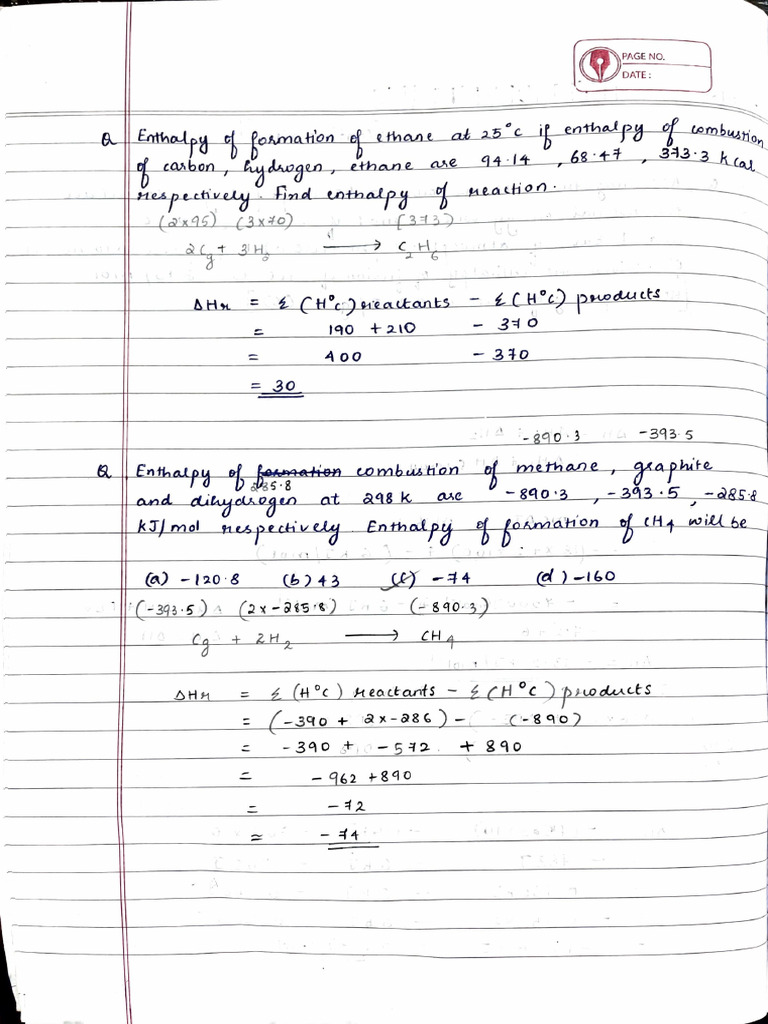 PAGE NO.
DATE:
Q Enthalpy of formation of ethane at 25°C if enthalpy of combustion
of carbon, hydrogen, ethane are 94.14, 68.47, 373.3 kcal
respectively. Find enthalpy of reaction.
(2x95) (3x70) (373)
2Cg + 3H₂ → C₂H₆
ΔHr = Σ(H°c) reactants - Σ(H°c) products
= 190 + 210 - 370
= 400 - 370
= 30
-890.3 -393.5
Q Enthalpy of formation combustion of methane, graphite
285.8
and dihydrogen at 298k are -890.3, -393.5, -285.8
kJ/mol respectively. Enthalpy of formation of CH₄ will be
(a) -120.8 (b) 43 (c) -74 (d) -160
(-393.5) (2x-285.8) (-890.3)
Cg + 2H₂ → CH₄
ΔHr = Σ(H°c) reactants - Σ(H°c) products
= (-390 + 2x-286) - (-890)
= -390 + -572 + 890
= -962 + 890
= -72
≈ -74